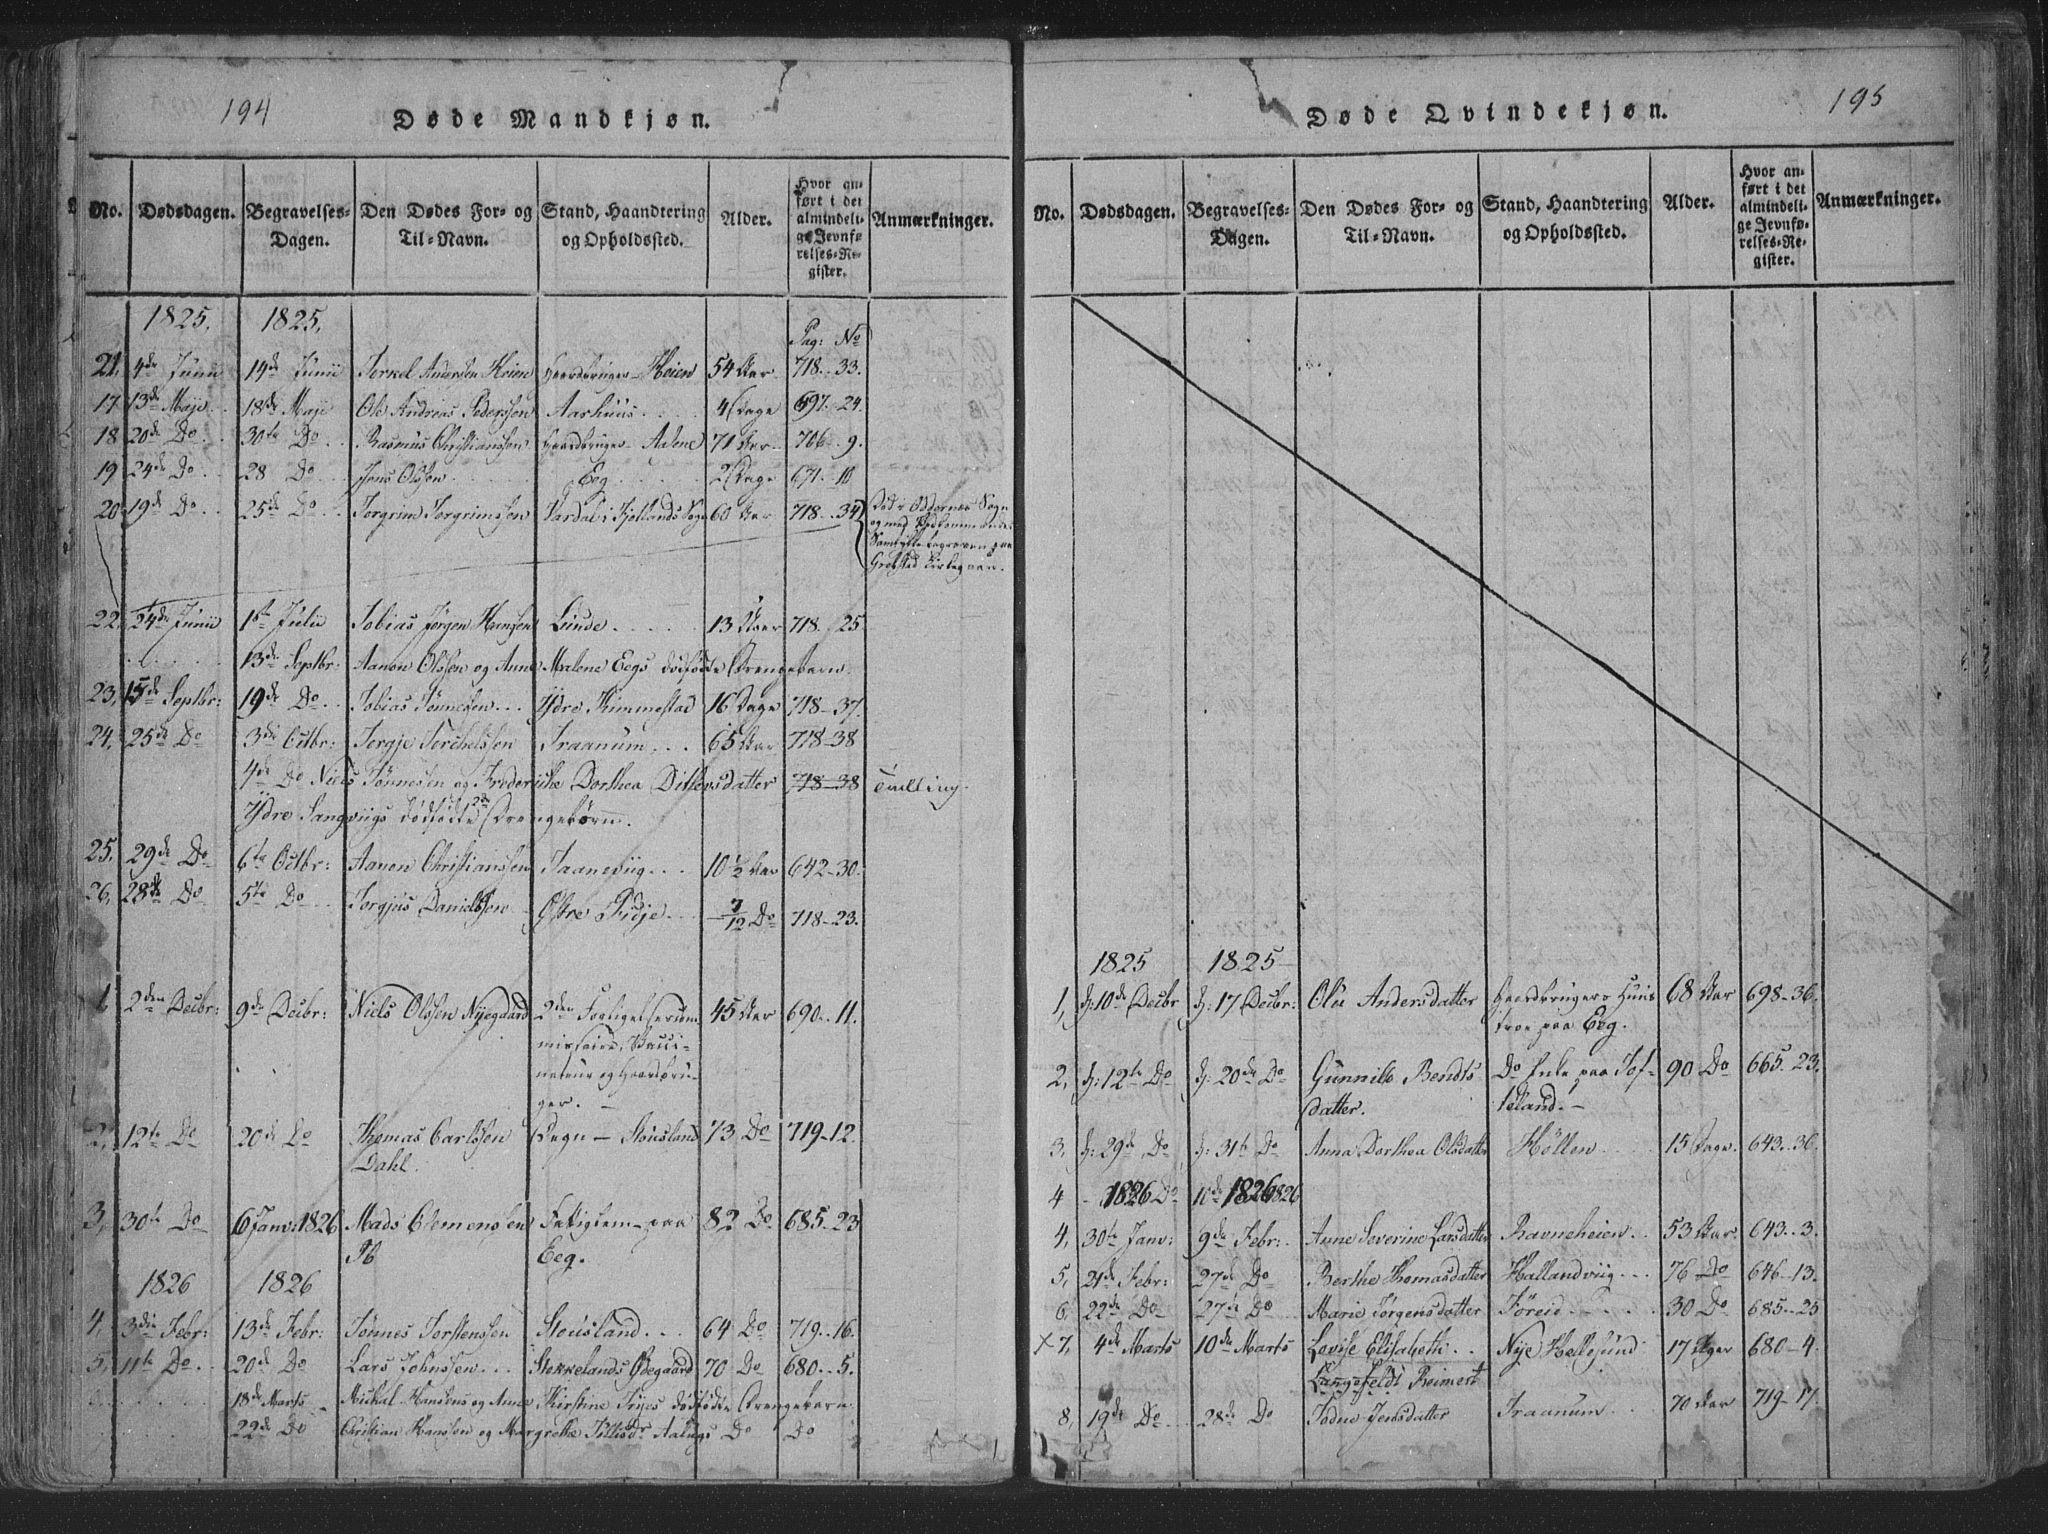 194
Døde Mandkjøn.
No. Dødsdagen. Begravelses-Dagen. Den Dødes For- og Til-Navn. Stand, Haandtering og Opholdssted. Alder. Hvor anført i det almindelige Jevnførelses-Register. Anmærkninger.
1825. 1825. Pag: No
21, 4de Junii 14de Junii Terkel Andersen Heien Gaardbruger Heien 54 Aar 718 .. 33.
17 13de Maje 18de Maje Ole Andreas Pedersen Aarhuus 4 Dage 697 .. 24.
18 20de Do 30te Do Rasmus Christianssen Gaardbruger 71 Aar 706 .. 9.
19 24de Do 28 Do Jens Olssen Eeg 2 Dage 671 .. 10
20 19de Do 25de Do Torgrim Torgrimssen i Fjellands Sogn 60 Aar 718 .. 34
Død i Oddernes Sogn
og med Vedkommendes
Samtykke begraven paa
Greipstad Kirkegaard.
22, 24de Junii 1ste Julii Tobias Jørgen Hansen Lunde 13 718 .. 25.
13de Septbr: Aanon Olssen og Anne Malene Eegs dødfødte Drengebarn.
23, 15de Septbr: 19de Do Tobias Tønnesen Ydre Kimmestad 16 Dage 718 - 37.
24, 25de Do 3die Octbr: Tergje Terchelssen Traanum 65 Aar 718 - 38
4de Do Niels Tønnesen og Frederikke Dorthea Ditlevsdatter 718 - 38 Tvilling.
Ydre Langviigs dødfødte 2de Drengebørn.
25. 29de Do 6te Octbr: Aanon Christianssen Taaneviig 10 1/2 Aar 642 - 30.
26, 28de Do 5te Do Torgjus Danielssen Østre Fidje 7/12 Do 718 - 23.
1 2den Decbr: 9de Decbr: Niels Olssen Nyegaard 2den Forligelsescommissair, Vacci- 45 Aar 690 .. 11.
nateur og Gaardbru-
ger.
2, 12te Do 20de Do Thomas Carlssen Degn - Stousland 73 Do 719 - 12.
Dahl.
3, 30te Do 6 Janv: 1826 Mads Clemenssen Fattiglem paa 82 Do 685 - 23
Eeg.
1826 1826
4, 3die Febr: 13de Febr: Tønnes Torstenssen Stousland 64 Do 719 .. 16.
5, 11te Do 20de Do Lars Johnssen Stokkelands Ødegaard 70 Do 680 .. 5.
18de Marts Michal Hansens og Anne Kirstine dødfødte Drengebarn
22de Do Christian Hanssen og Margrethe Do Do
195
Døde Qvindekjøn.
No. Dødsdagen. Begravelses-Dagen. Den Dødes For- og Til-Navn. Stand, Haandtering og Opholdssted. Alder. Hvor anført i det almindelige Jevnførelses-Register. Anmærkninger.
1825 1825
1, d: 10de Decbr d: 17 Decbr: Olu Andersdatter Gaardbrugers Huus- 68 Aar 698 - 36.
troe paa Eeg.
2, d: 12te Do d: 20de Do Gunnild Bendts- Do Enke paa Tof- 90 Do 665 - 23.
datter. teland.
3, d: 29de Do d: 31te Do Anna Dorthea Olsdatter Höllen 15 Dage 643 .. 36.
4 1826 Do 10de 1826 1826
4, 30te Janv: 9de Febr: Anne Severine Larsdatter Ravneheien 53 Aar 643 .. 3.
5, 21de Febr: 27de Do Berthe Thomasdatter Hallandviig 76 Do 646 - 13.
6, 22de Do 27de Do Marie Jørgensdatter Föreid 30 Do 685 .. 25
x 7, 4de Marts 10de Marts Lovise Elisabeth Nye Hellesund 17 Uger 680 - 4.
Langefeldt Reimert
8, 19de Do 28de Do Todne Jensdatter Traanum 70 Aar 719 - 17.